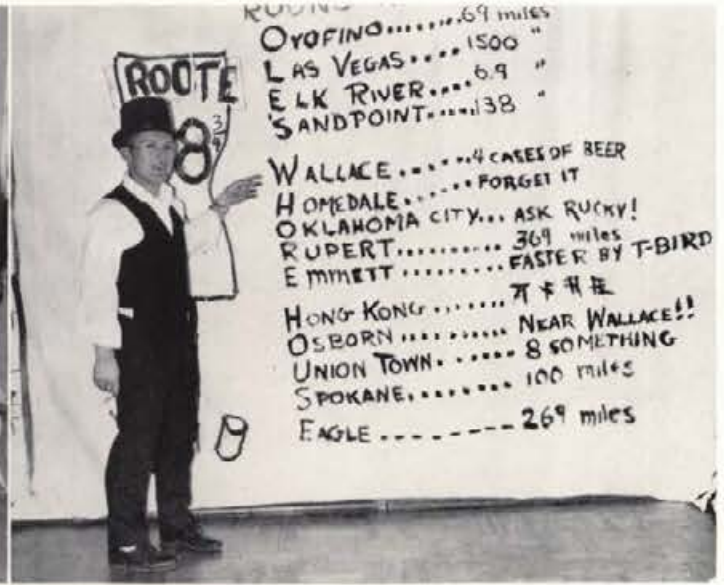 ROUTE
8 3/4
OROFINO.......69 miles
LAS VEGAS....1500 "
ELK RIVER....6.9 "
SANDPOINT.....138 "
WALLACE......4 CASES OF BEER
HOMEDALE......FORGET IT
OKLAHOMA CITY...ASK RUCKY!
RUPERT..........369 miles
EMMETT.........FASTER BY T-BIRD
HONG KONG.......
OSBORN..........NEAR WALLACE!!
UNION TOWN......8 SOMETHING
SPOKANE.........100 miles
EAGLE--------269 miles